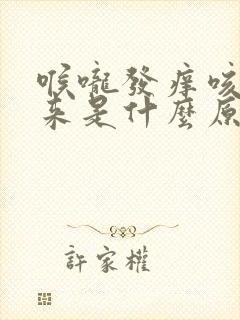 喉嚨發癢咳
來是什麼原
許家權